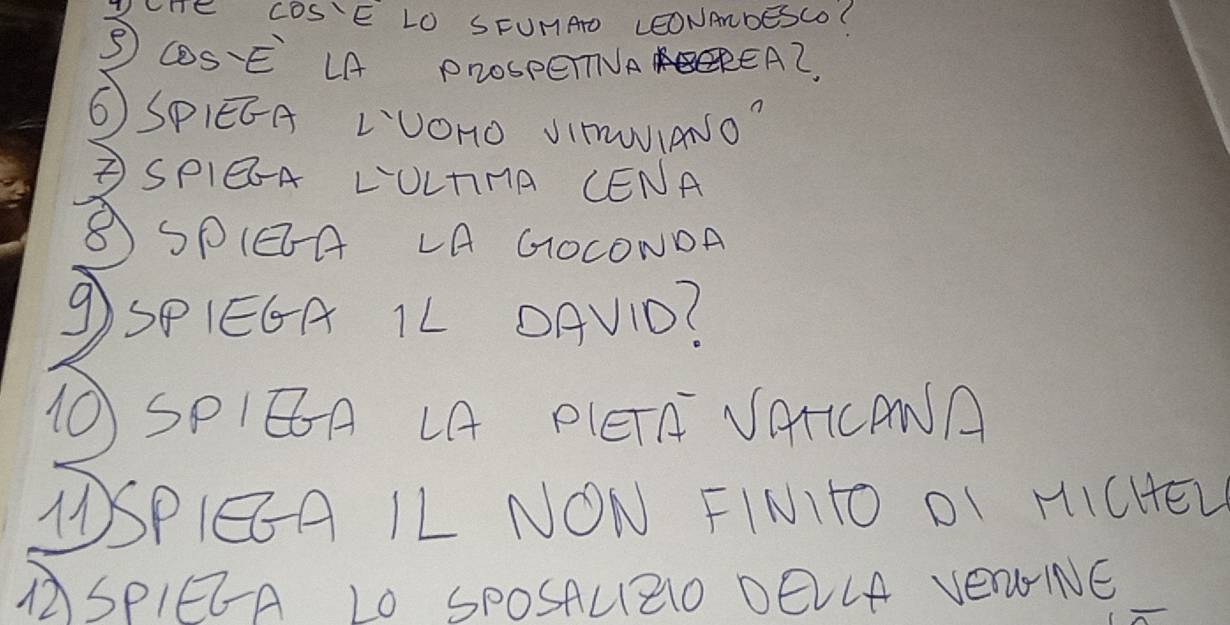 4) CHE COS'E LO SFUMATO LEONARDESCO?
5) COS'E' LA PROSPETTIVA AEREA?
6) SPIEGA L'UOMO VITRUVIANO"
7) SPIEGA L'ULTIMA CENA
8) SPIEGA LA GIOCONDA
9) SPIEGA IL DAVID?
10) SPIEGA LA PIETÀ VATICANA
11) SPIEGA IL NON FINITO DI MICHEL
12) SPIEGA LO SPOSALIZIO DELLA VERGINE